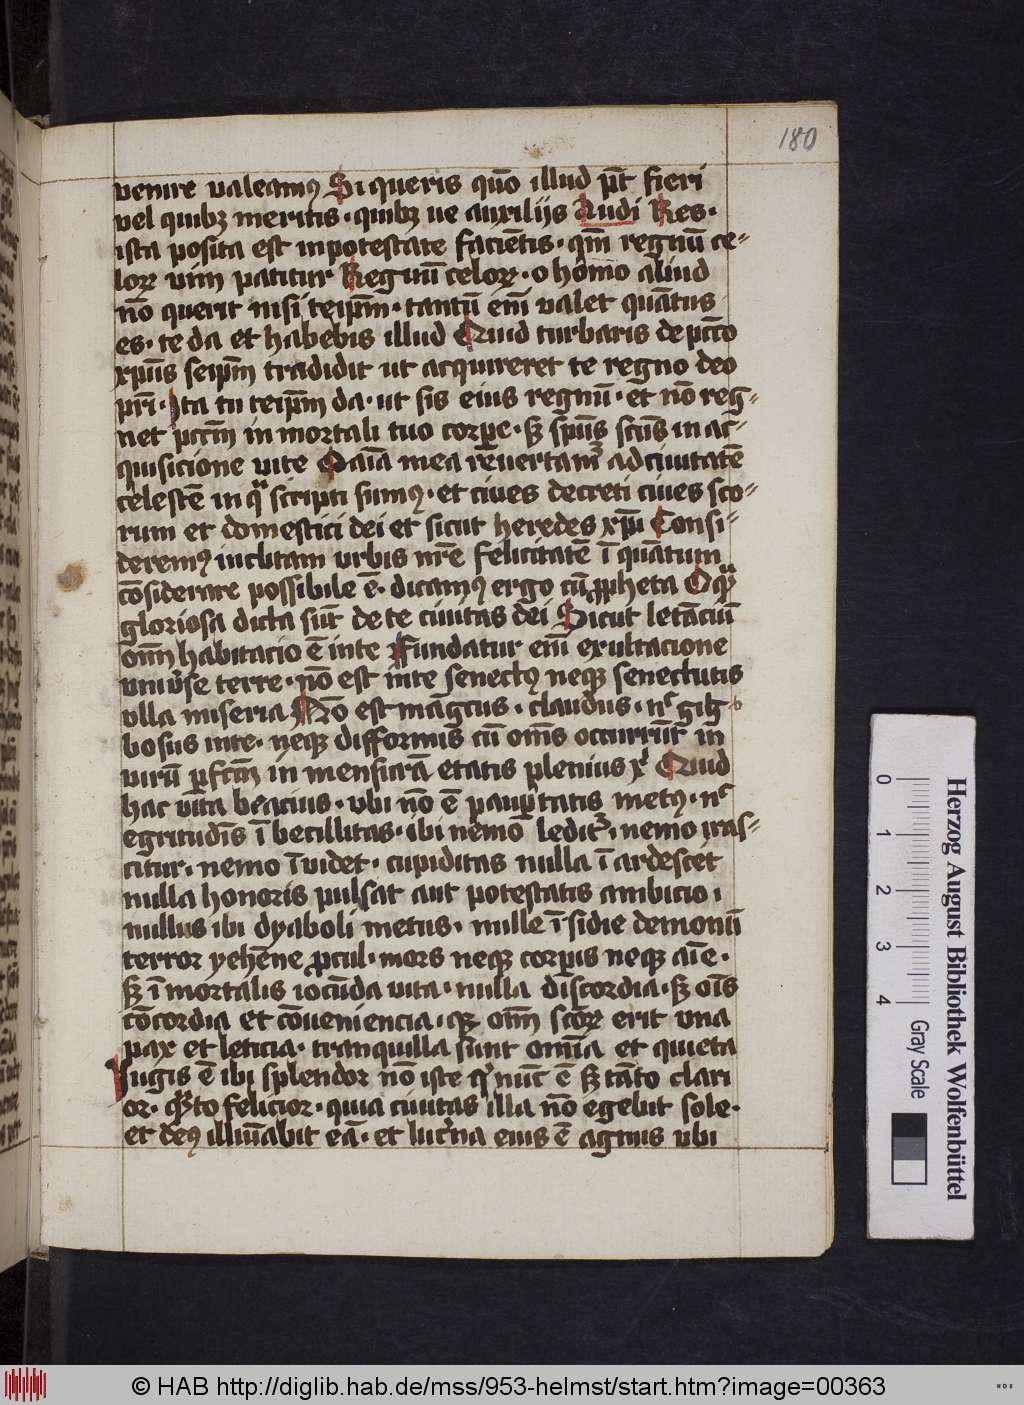 180
venire valeamꝰ Si queris quō illud pt̄ fieri
vel quibꝫ meritis · quibꝫ ue auxilijs Audi Res ·
ista posita est in potestate faciētis · qm̄ regnū ce-
loꝝ vim patitur Regnū celoꝝ · o homo aliud
nō querit nisi teip̄m · tantū em̄ valet quātus
es · te da et habebis illud Quid turbaris de p̄cio
xp̄us seip̄m tradidit ut acquireret te regno deo
pr̄i · Ita tu teip̄m da · ut sis eius regnū · et nō reg-
net pctm̄ in mortali tuo corꝑe · sꝫ spūs scūs in ac-
quisicione vite O aīa mea revertamʳ ad ciuitatē
celestē in qᵃ scripti sumꝰ · et ciues decreti ciues sco-
rum et domestici dei et sicut heredes xp̄i Consi-
deremꝰ inclitam urbis nr̄e felicitatē ī quātum
cōsiderare possibile ē · dicamꝰ ergo cū ꝓpheta O qᵃꝫ
gloriosa dicta sūt de te ciuitas dei Sicut letāciū
om̄ habitacio ē in te ꝛ fundatur em̄ exultacione
vniu̓se terre · nō est in te senectꝰ neqꝫ senectutis
vlla miseria Nō est māgcus · claudus · nᶜ gib-
bosus in te · neqꝫ difformis cū om̄s occurrūt in
virū ꝑfctm̄ in mensurā etatis plenius xⁱ Quid
hac vita beacius · vbi nō ē pauꝑtatis metꝰ · nᶜ
egritudīs ībecillitas · ibi nemo leditʳ · nemo iras-
citur · nemo īuidet · cupiditas nulla īardescit
nulla honoris pulsat aut potestatis ambicio ·
nullus ibi dyaboli metus · nulle īsidie demonū
terror yehēne ꝓcul · mors neqꝫ corꝑis neqꝫ aīe ·
sꝫ īmortalis iocūda vita · nulla discordia · sꝫ oīs
cōcordia et cōueniencia · qꝫ om̄ scoꝝ erit vna
pax et leticia · tranquilla sunt omīa et quieta
Iugis ē ibi splendor nō iste qⁱ nūc ē sꝫ tāto clari
or · qᵃto felicior · quia ciuitas illa nō egebit sole ·
et deꝰ illuīabit eā · et luc̓na eius ē agnus vbi
© HAB http://diglib.hab.de/mss/953-helmst/start.htm?image=00363
Herzog August Bibliothek Wolfenbüttel
0 1 2 3 4 Gray Scale